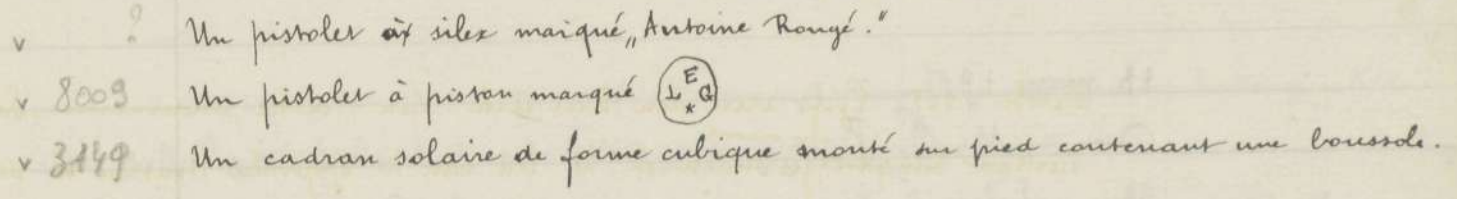 v ? Un pistolet à silex marqué „Antoine Rougé."
v 8009 Un pistolet à piston marqué E L G *
v 3149 Un cadran solaire de forme cubique monté sur pied contenant une boussole.